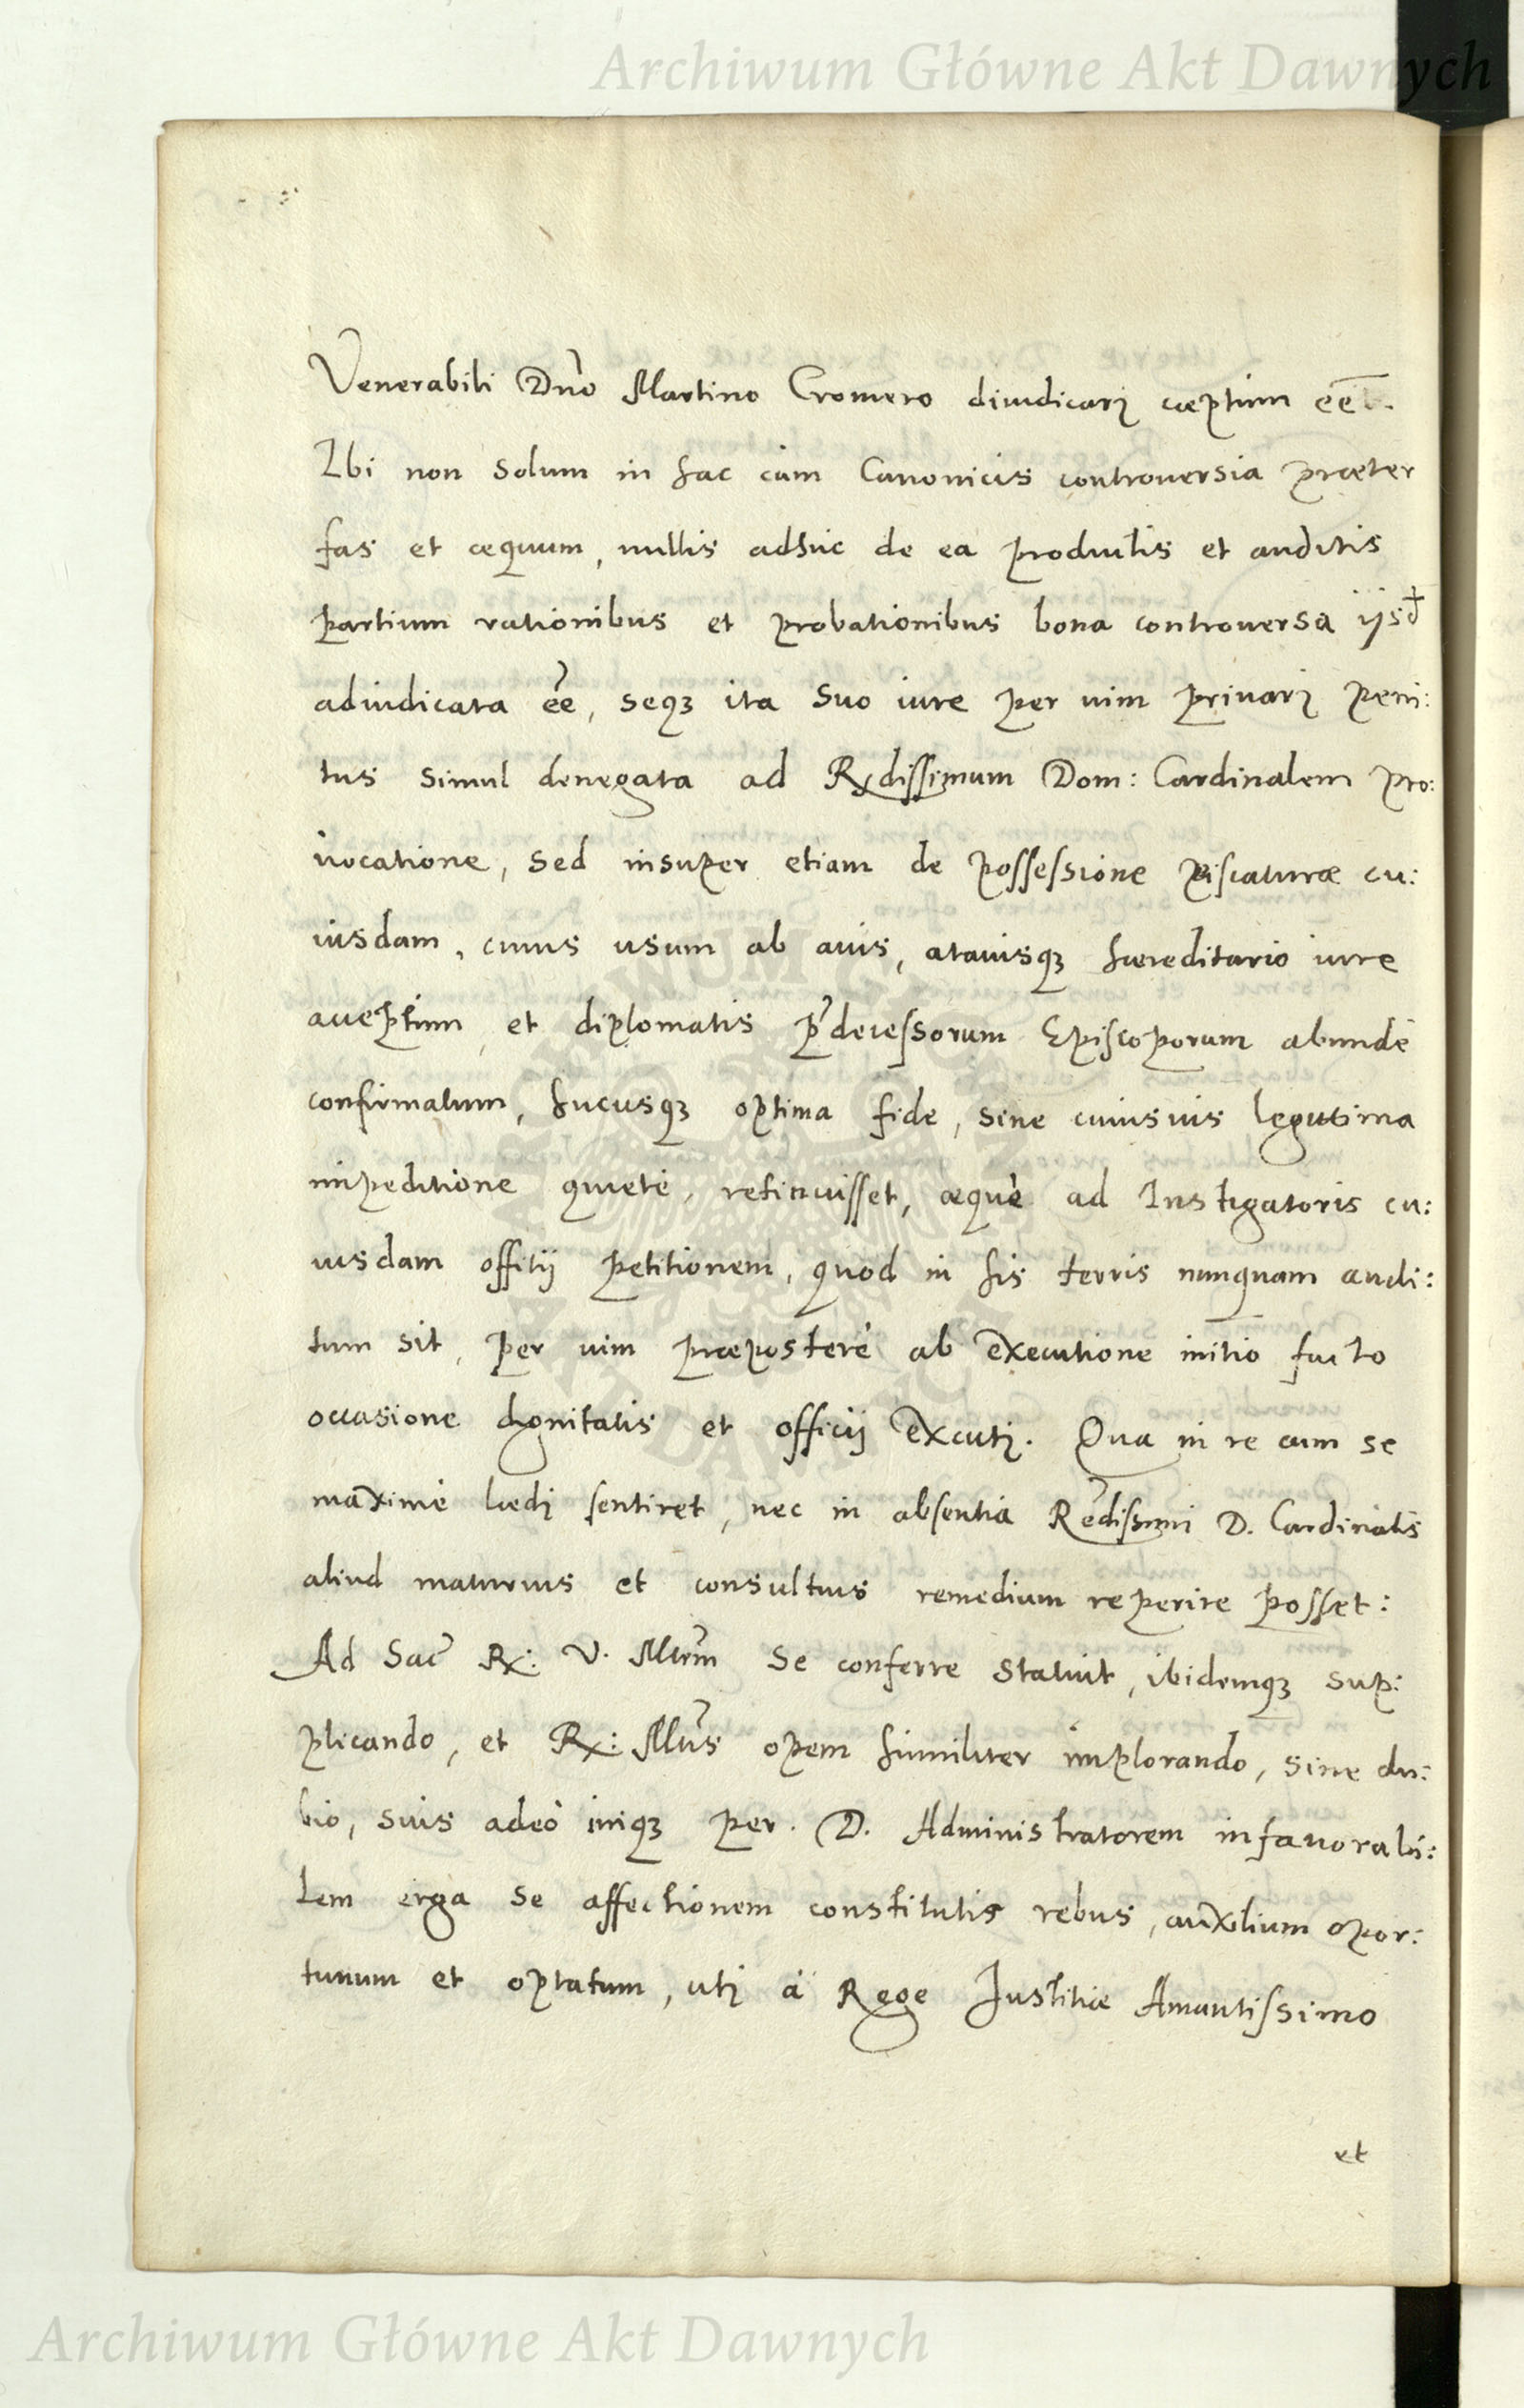 Archiwum Główne Akt Dawnych
Venerabili Dno Martino Cromero diiudicari cæptum eēt.
Ibi non solum in hac cum Canonicis controuersia præter
fas et æquum, nullis adhuc de ea productis et auditis
partium rationibus et probationibus bona controuersa ijsd
adiudicata ee, seqз ita suo iure per uim priuari peni:
tus simul denegata ad Rxdissimum Dom: Cardinalem pro:
uocatione, sed insuper etiam de possessione piscaturæ cu:
iusdam, cuius usum ab auis, atauisqз hæreditario iure
acceptum et diplomatis pdecessorum Episcoporum abundè
confirmatum, hucusqз optima fide, sine cuiusuis legitima
impeditione quietè, retinuisset, æquè ad Instigatoris cu:
iusdam offitij petitionem, quod in his terris nunquam audi:
tum sit, per uim præposterè ab executione initio facto
occasione dignitatis et officij excuti. Qua in re cum se
maximè lædi sentiret, nec in absentia Redissimi D. Cardinalis
aliud maturius et consultius remedium reperire posset:
Ad Sac Rx: V. Mtem se conferre statuit, ibidemqз sup:
plicando, et Rx: Mtis opem humiliter implorando, sine du:
bio, suis adeò iniqз per. D. Administratorem infauorabi:
lem erga se affectionem constitutis rebus, auxilium opor:
tunum et optatum, uti à Rege Justitiæ Amantissimo
et
Archiwum Główne Akt Dawnych